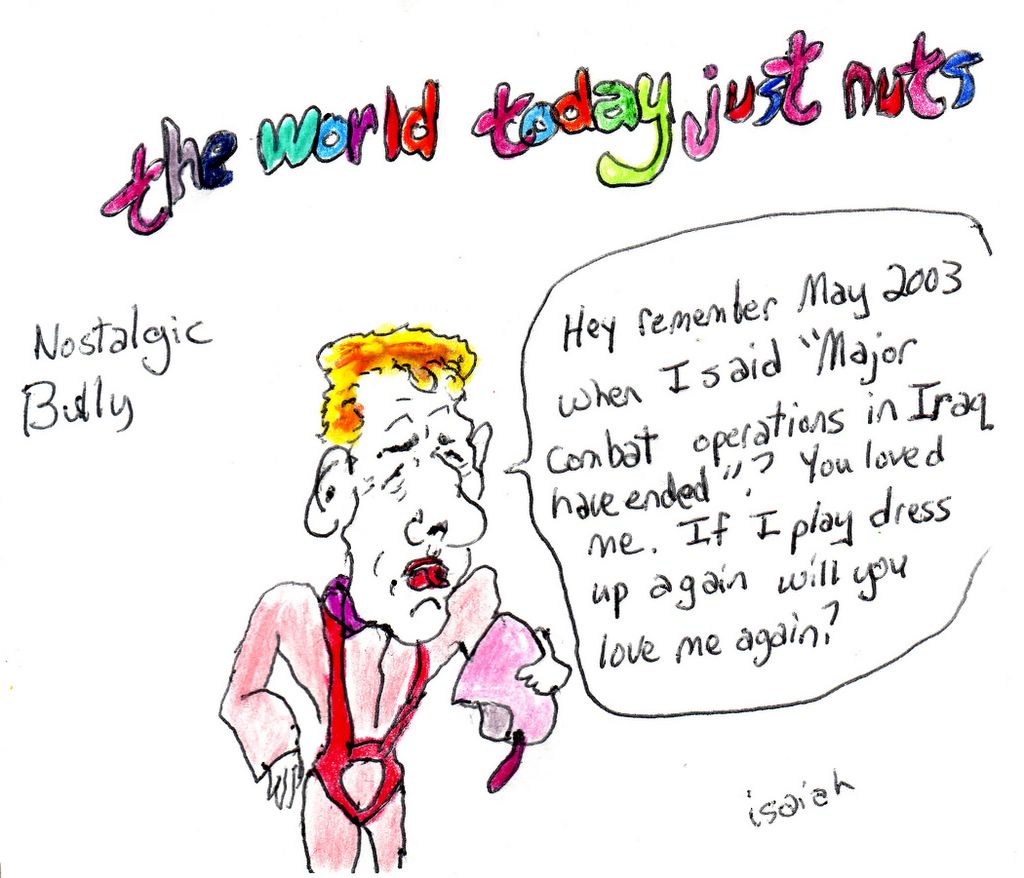 the world today just nuts
Nostalgic
Bully
Hey remember May 2003
when I said "Major
combat operations in Iraq
have ended"? You loved
me. If I play dress
up again will you
love me again?
isaiah